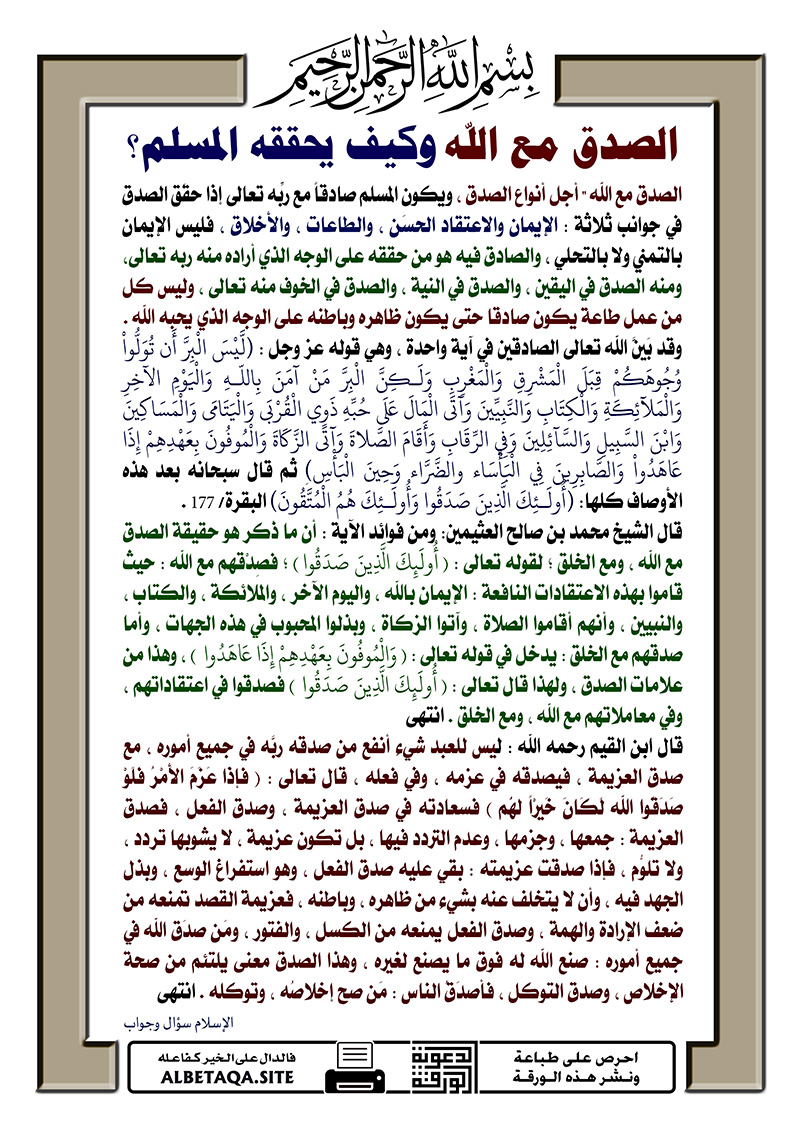 بِسْمِ اللَّهِ الرَّحْمَنِ الرَّحِيمِ
الصدق مع الله وكيف يحققه المسلم؟
الصدق مع الله - أجل أنواع الصدق ، ويكون المسلم صادقاً مع ربِّه تعالى إذا حقق الصدق
في جوانب ثلاثة : الإيمان والاعتقاد الحسَن ، والطاعات ، والأخلاق ، فليس الإيمان
بالتمني ولا بالتحلي ، والصادق فيه هو من حققه على الوجه الذي أراده منه ربه تعالى،
ومنه الصدق في اليقين ، والصدق في النية ، والصدق في الخوف منه تعالى ، وليس كل
من عمل طاعة يكون صادقا حتى يكون ظاهره وباطنه على الوجه الذي يحبه الله .
وقد بَيَنَّ الله تعالى الصادقين في آية واحدة ، وهي قوله عز وجل : (لَّيْسَ الْبِرَّ أَن تُوَلُّواْ
وُجُوهَكُمْ قِبَلَ الْمَشْرِقِ وَالْمَغْرِبِ وَلَـكِنَّ الْبِرَّ مَنْ آمَنَ بِاللّهِ وَالْيَوْمِ الآخِرِ
وَالْمَلآئِكَةِ وَالْكِتَابِ وَالنَّبِيِّينَ وَآتَى الْمَالَ عَلَى حُبِّهِ ذَوِي الْقُرْبَى وَالْيَتَامَى وَالْمَسَاكِينَ
وَابْنَ السَّبِيلِ وَالسَّآئِلِينَ وَفِي الرِّقَابِ وَأَقَامَ الصَّلاةَ وَآتَى الزَّكَاةَ وَالْمُوفُونَ بِعَهْدِهِمْ إِذَا
عَاهَدُواْ وَالصَّابِرِينَ فِي الْبَأْسَاء والضَّرَّاء وَحِينَ الْبَأْسِ) ثم قال سبحانه بعد هذه
الأوصاف كلها: (أُولَـئِكَ الَّذِينَ صَدَقُوا وَأُولَـئِكَ هُمُ الْمُتَّقُونَ) البقرة/ 177 .
قال الشيخ محمد بن صالح العثيمين: ومن فوائد الآية : أن ما ذكر هو حقيقة الصدق
مع الله ، ومع الخلق ؛ لقوله تعالى : ( أُولَئِكَ الَّذِينَ صَدَقُوا ) ؛ فصِدْقهم مع الله : حيث
قاموا بهذه الاعتقادات النافعة : الإيمان بالله ، واليوم الآخر ، والملائكة ، والكتاب ،
والنبيين ، وأنهم أقاموا الصلاة ، وآتوا الزكاة ، وبذلوا المحبوب في هذه الجهات ، وأما
صدقهم مع الخلق : يدخل في قوله تعالى : ( وَالْمُوفُونَ بِعَهْدِهِمْ إِذَا عَاهَدُوا ) ، وهذا من
علامات الصدق ، ولهذا قال تعالى : ( أُولَئِكَ الَّذِينَ صَدَقُوا ) فصدقوا في اعتقاداتهم ،
وفي معاملاتهم مع الله ، ومع الخلق . انتهى
قال ابن القيم رحمه الله : ليس للعبد شيء أنفع من صدقه ربَّه في جميع أموره ، مع
صدق العزيمة ، فيصدقه في عزمه ، وفي فعله ، قال تعالى : ( فَإِذَا عَزَمَ الأَمْرُ فَلَوْ
صَدَقُوا الله لَكَانَ خَيْراً لهُم ) فسعادته في صدق العزيمة ، وصدق الفعل ، فصدق
العزيمة : جمعها ، وجزمها ، وعدم التردد فيها ، بل تكون عزيمة ، لا يشوبها تردد ،
ولا تلوُّم ، فإذا صدقت عزيمته : بقي عليه صدق الفعل ، وهو استفراغ الوسع ، وبذل
الجهد فيه ، وأن لا يتخلف عنه بشيء من ظاهره ، وباطنه ، فعزيمة القصد تمنعه من
ضعف الإرادة والهمة ، وصدق الفعل يمنعه من الكسل ، والفتور ، ومَن صدَق الله في
جميع أموره : صنع الله له فوق ما يصنع لغيره ، وهذا الصدق معنى يلتئم من صحة
الإخلاص ، وصدق التوكل ، فأصدَقُ الناس : مَن صح إخلاصُه ، وتوكله . انتهى
الإسلام سؤال وجواب
احرص على طباعة
ونشر هذه الورقة
الورقة الدعوية
فالدال على الخير كفاعله
ALBETAQA.SITE